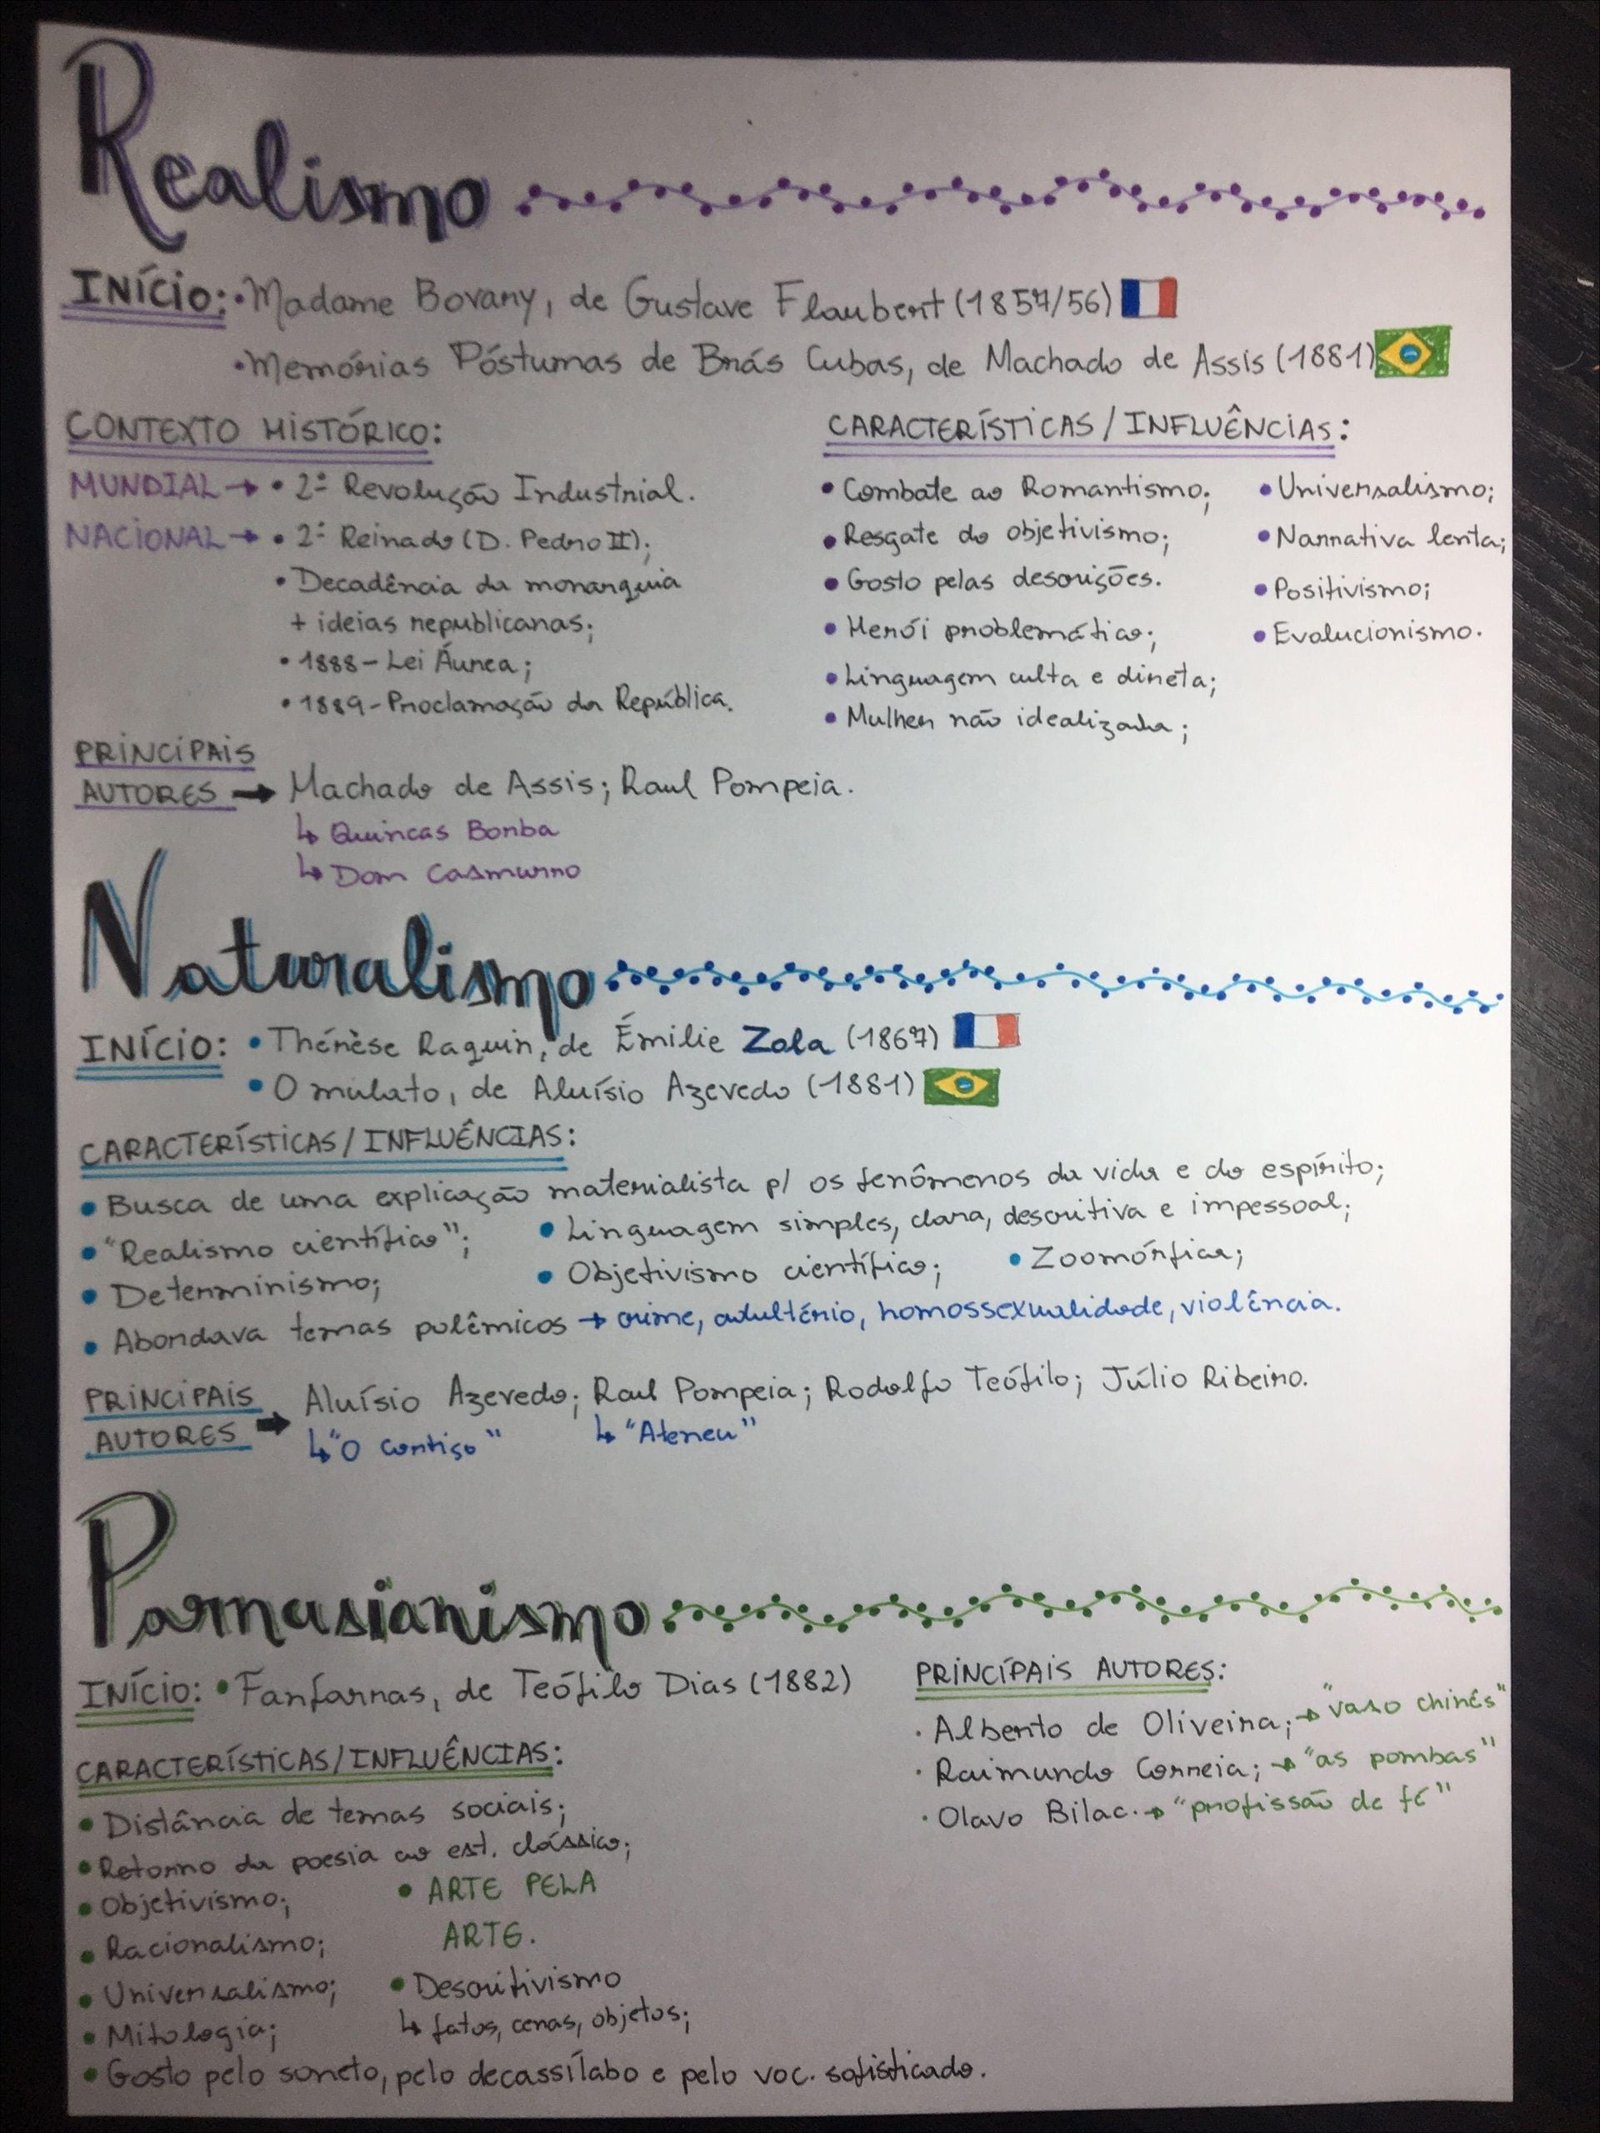 Realismo
INÍCIO: • Madame Bovary, de Gustave Flaubert (1857/56)
• Memórias Póstumas de Brás Cubas, de Machado de Assis (1881)
CONTEXTO HISTÓRICO:
MUNDIAL → • 2ª Revolução Industrial.
NACIONAL → • 2º Reinado (D. Pedro II);
• Decadência da monarquia
+ ideias republicanas;
• 1888 - Lei Áurea;
• 1889 - Proclamação da República.
CARACTERÍSTICAS / INFLUÊNCIAS:
• Combate ao Romantismo;
• Resgate do objetivismo;
• Gosto pelas descrições.
• Herói problemático;
• Linguagem culta e direta;
• Mulher não idealizada;
• Universalismo;
• Narrativa lenta;
• Positivismo;
• Evolucionismo.
PRINCIPAIS
AUTORES → Machado de Assis; Raul Pompeia.
↳ Quincas Borba
↳ Dom Casmurro
Naturalismo
INÍCIO: • Thérèse Raquin, de Émilie Zola (1867)
• O mulato, de Aluísio Azevedo (1881)
CARACTERÍSTICAS / INFLUÊNCIAS:
• Busca de uma explicação materialista p/ os fenômenos da vida e do espírito;
• "Realismo científico"; • Linguagem simples, clara, descritiva e impessoal;
• Determinismo; • Objetivismo científico; • Zoomórfica;
• Abordava temas polêmicos → crime, adultério, homossexualidade, violência.
PRINCIPAIS
AUTORES → Aluísio Azevedo; Raul Pompeia; Rodolfo Teófilo; Júlio Ribeiro.
↳ "O cortiço" ↳ "Ateneu"
Parnasianismo
INÍCIO: • Fanfarras, de Teófilo Dias (1882)
CARACTERÍSTICAS / INFLUÊNCIAS:
• Distância de temas sociais;
• Retorno da poesia ao est. clássico;
• Objetivismo;
• Racionalismo;
• Universalismo;
• Mitologia;
• ARTE PELA
ARTE.
• Descritivismo
↳ fatos, cenas, objetos;
• Gosto pelo soneto, pelo decassílabo e pelo voc. sofisticado.
PRINCÍPAIS AUTORES:
· Alberto de Oliveira; → "vaso chinês"
· Raimundo Correia; → "as pombas"
· Olavo Bilac. → "profissão de fé"